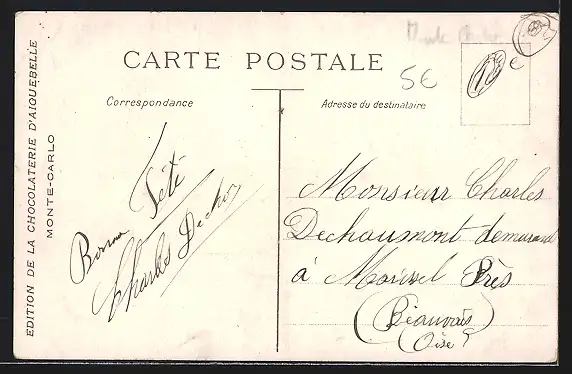 CARTE POSTALE
Correspondance
Adresse du destinataire
EDITION DE LA CHOCOLATERIE D'AIQUEBELLE
MONTE-CARLO
5€
€
Bonne Fête
Charles
Monsieur Charles
Dechaumont demeurant
à Près
(Beauvais)
(Oise)